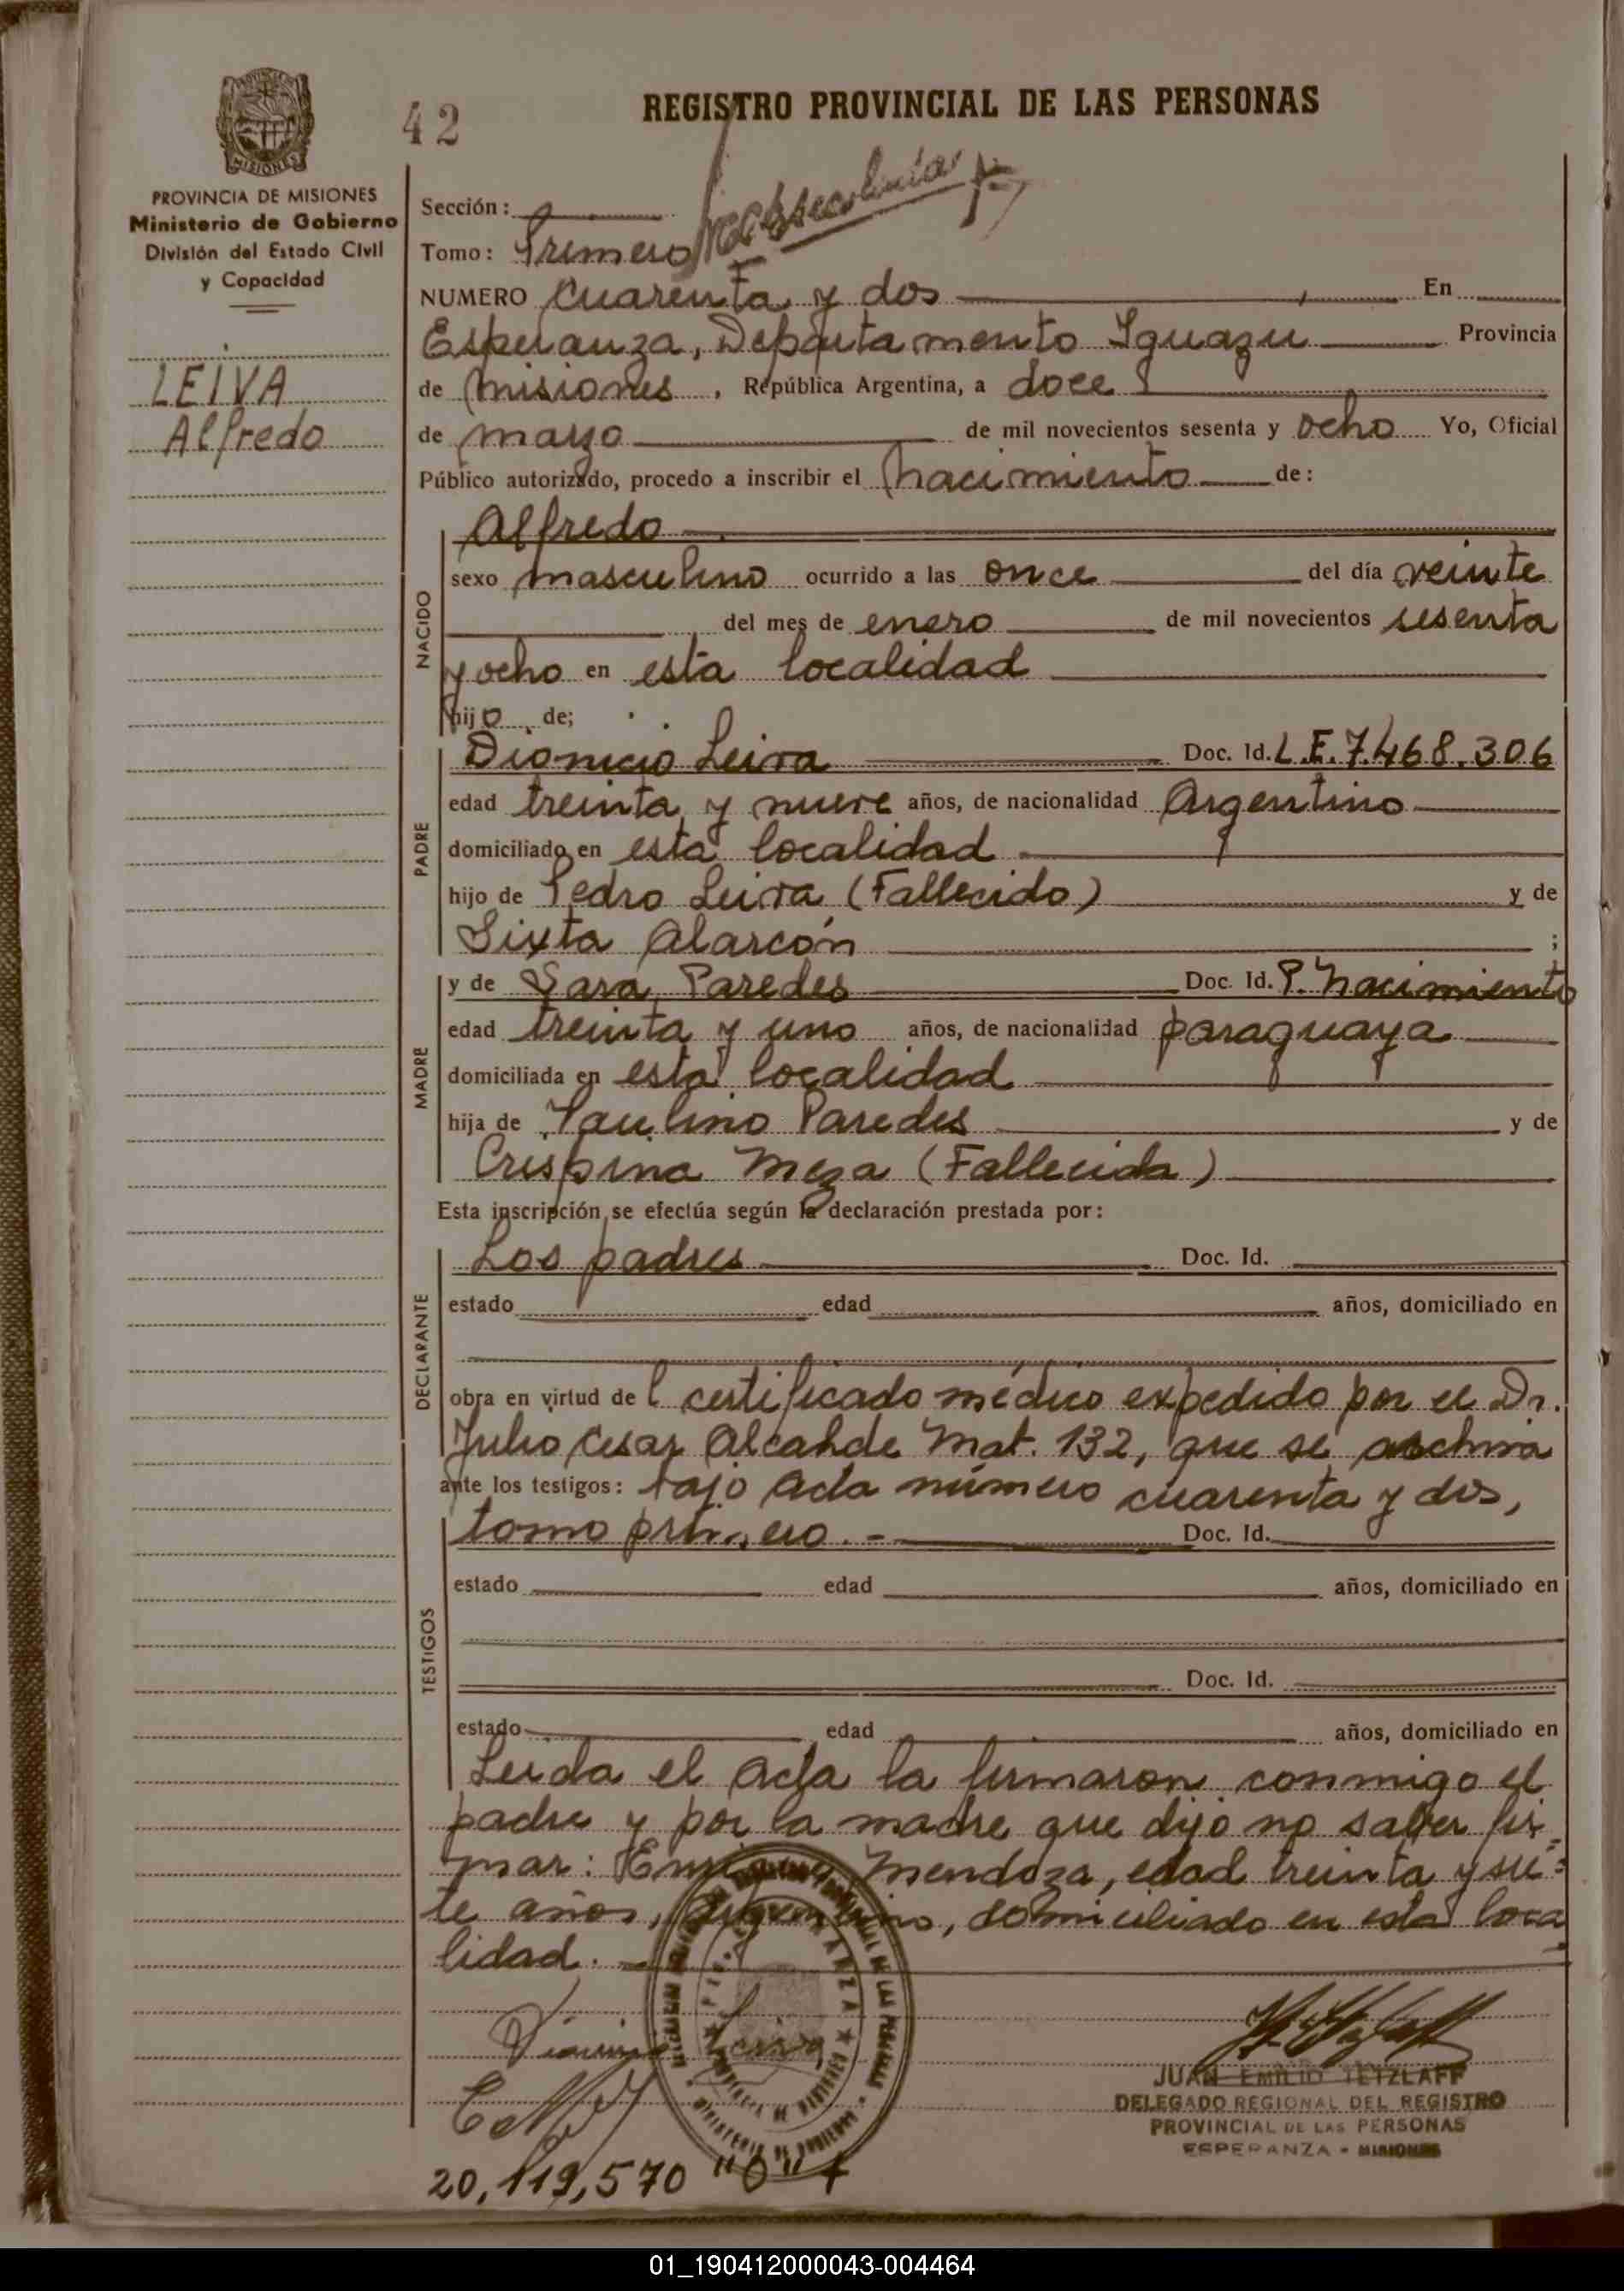 42
REGISTRO PROVINCIAL DE LAS PERSONAS
MISIONES
PROVINCIA DE MISIONES
Ministerio de Gobierno
División del Estado Civil
y Capacidad
LEIVA
Alfredo
Sección:
Tomo: Primero
NUMERO cuarenta y dos En
Esperanza, Departamento Iguazu Provincia
de misiones, República Argentina, a doce
de marzo de mil novecientos sesenta y ocho Yo, Oficial
Público autorizado, procedo a inscribir el nacimiento de:
NACIDO
Alfredo
sexo masculino ocurrido a las once del día veinte
del mes de enero de mil novecientos sesenta
y ocho en esta localidad
hijo de;
PADRE
Dionicio Leiva Doc. Id. L.E. 7.468.306
edad treinta y nueve años, de nacionalidad Argentino
domiciliado en esta localidad
hijo de Pedro Leiva (Fallecido) y de
Sixta Alarcón ;
MADRE
y de Sara Paredes Doc. Id. P. nacimiento
edad treinta y uno años, de nacionalidad paraguaya
domiciliada en esta localidad
hija de Paulino Paredes y de
Crispina Meza (Fallecida)
Esta inscripción se efectúa según la declaración prestada por:
DECLARANTE
Los padres Doc. Id.
estado edad años, domiciliado en
obra en virtud del certificado médico expedido por el Dr.
Julio Cesar Alcahde Mat. 132, que se archiva
ante los testigos: bajo acta número cuarenta y dos,
TESTIGOS
tomo primero.- Doc. Id.
estado edad años, domiciliado en
Doc. Id.
estado edad años, domiciliado en
Leida el acta la firmaron conmigo el
padre y por la madre que dijo no saber fir
mar: Mendoza, edad treinta y sie-
te años, argentino, domiciliado en esta loca
lidad.
Leiva
JUAN EMILIO TETZLAFF
DELEGADO REGIONAL DEL REGISTRO
PROVINCIAL DE LAS PERSONAS
ESPERANZA - MISIONES
20,119,570 "0" +
01_190412000043-004464